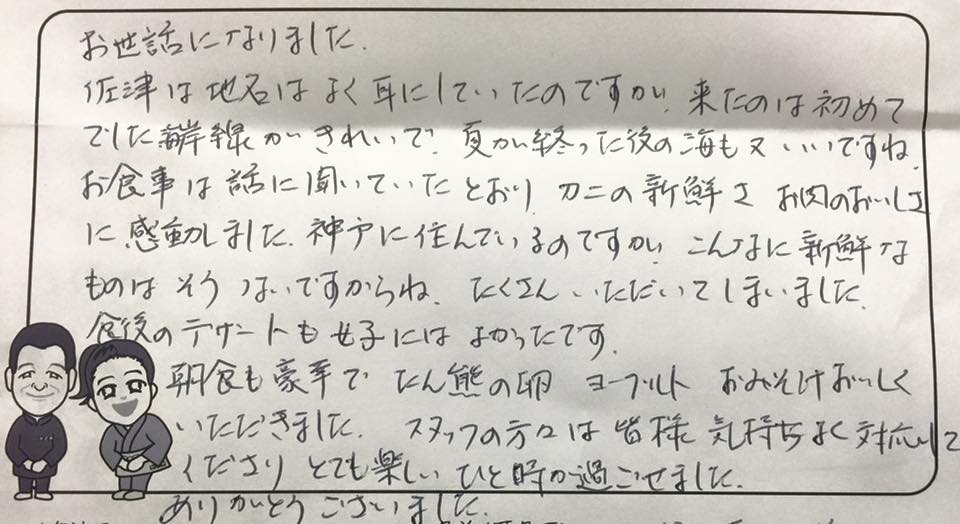 お世話になりました.
佐津は地名はよく耳にしていたのですが、来たのは初めて
でした 海岸線がきれいで、夏が終った後の海も又いいですね.
お食事は話に聞いていたとおり カニの新鮮さ お肉のおいしさ
に感動しました. 神戸に住んでいるのですが、こんなに新鮮な
ものはそうないですからね、たくさんいただいてしまいました.
食後のデザートも女子にはよかったです.
朝食も豪華で たん熊の卵 ヨーグルト おみそ汁おいしく
いただきました. スタッフの方々は皆様気持ちよく対応して
くださり とても楽しいひと時が過ごせました.
ありがとうございました.